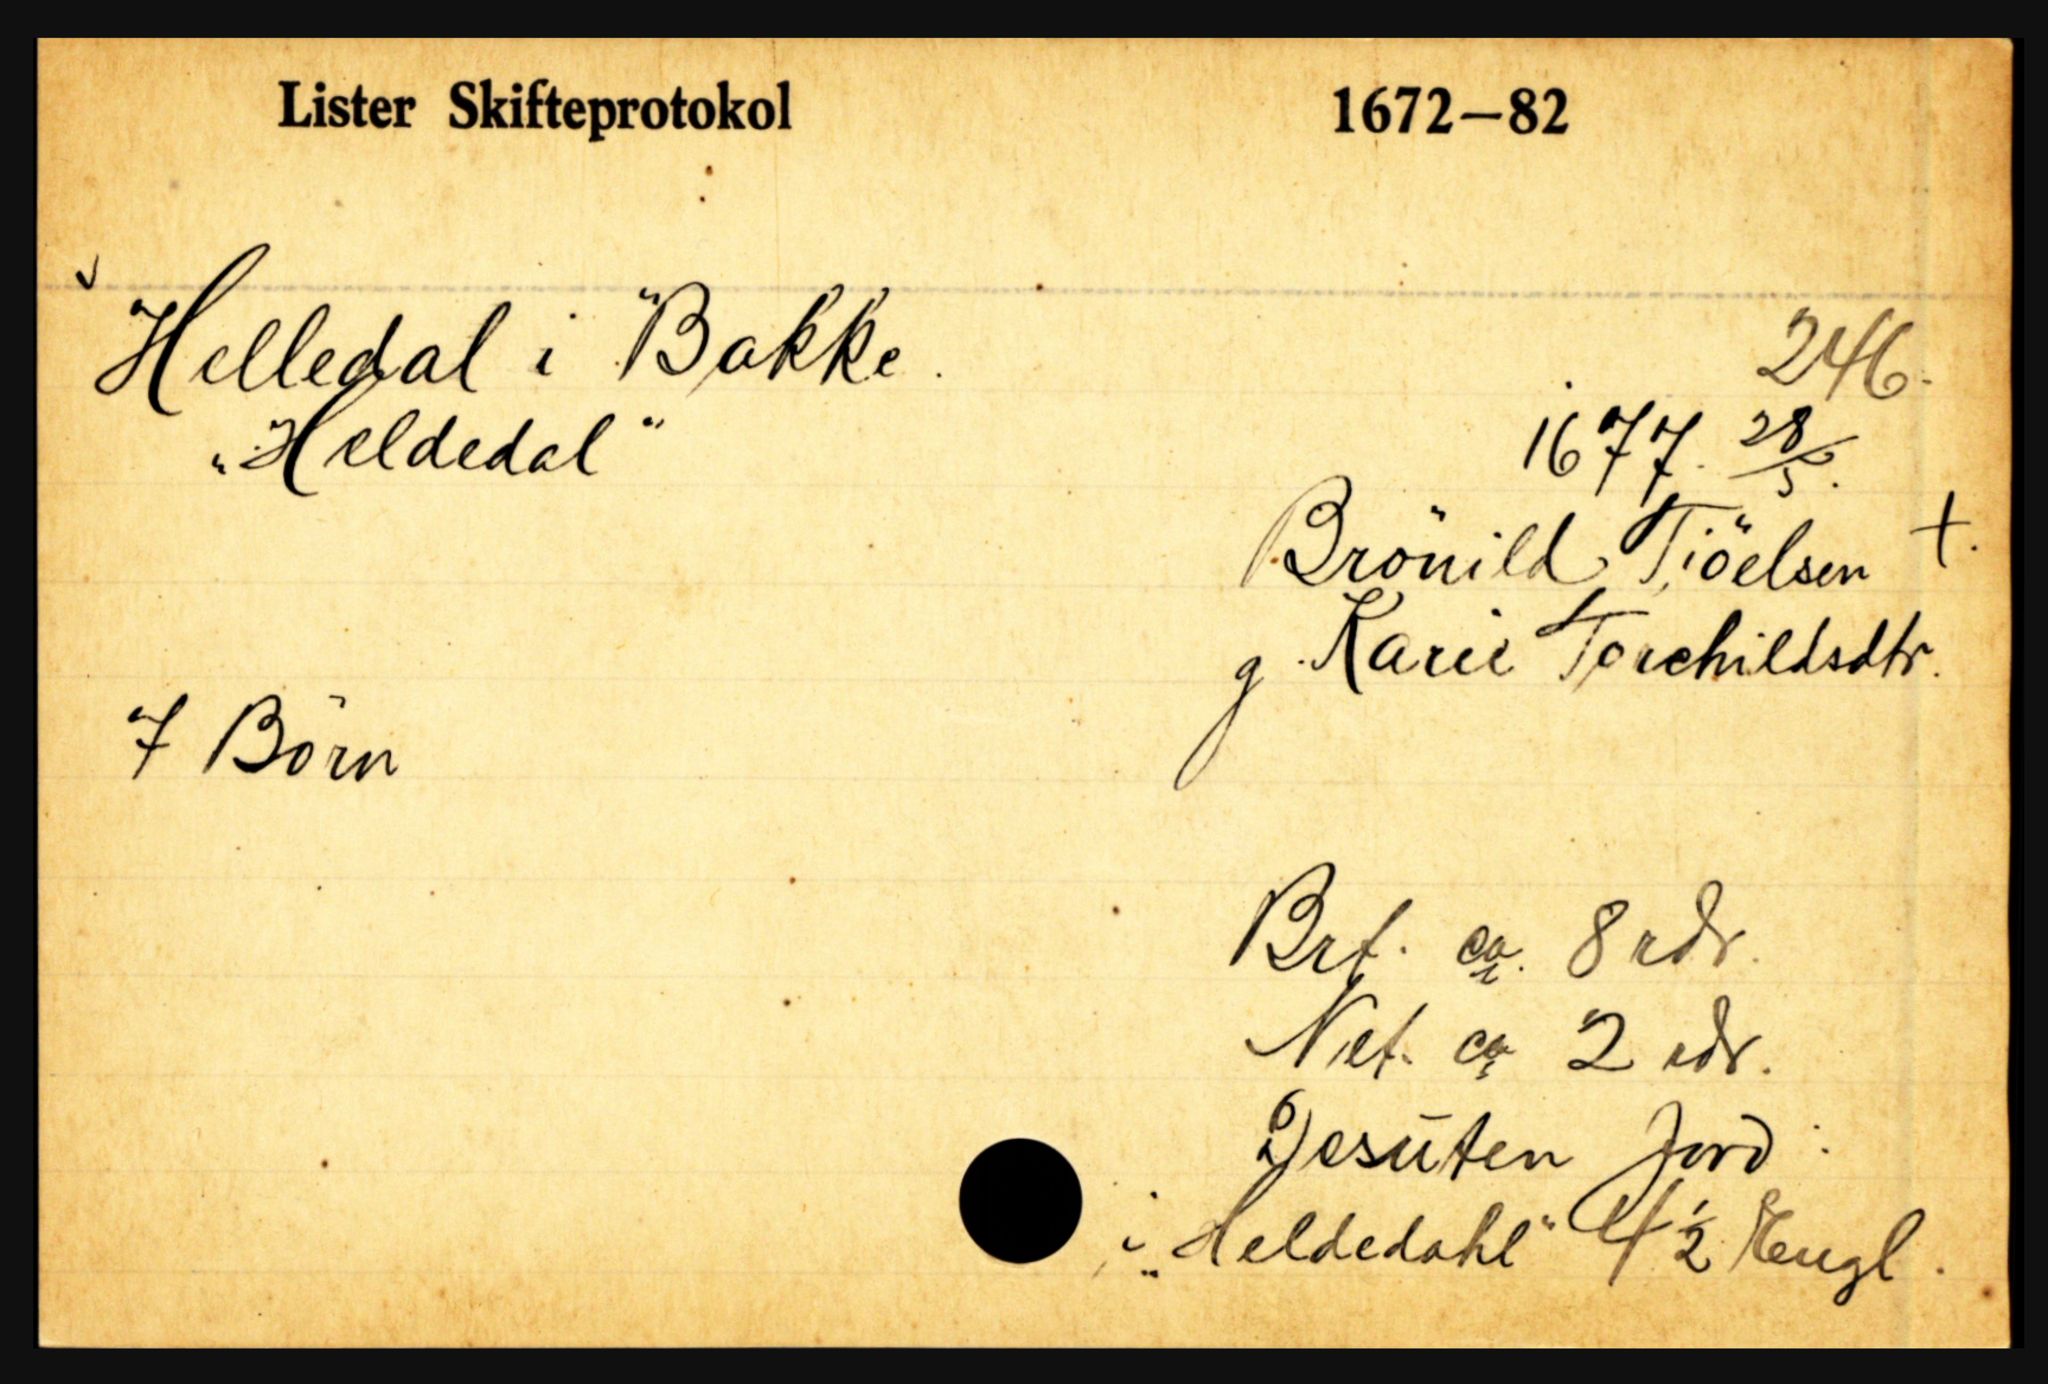 Lister Skifteprotokol 1672–82
Helledal i Bakke. 246.
"Heldedal" 1677. 28/5.
Brönild Tiöelsen +.
g. Karie Torchildsdtr.
7 Börn
Brt. ca. 8 rdr.
Net. ca 2 rdr.
Desuten Jord
i "Heldedahl" 4 1/2 Engl.